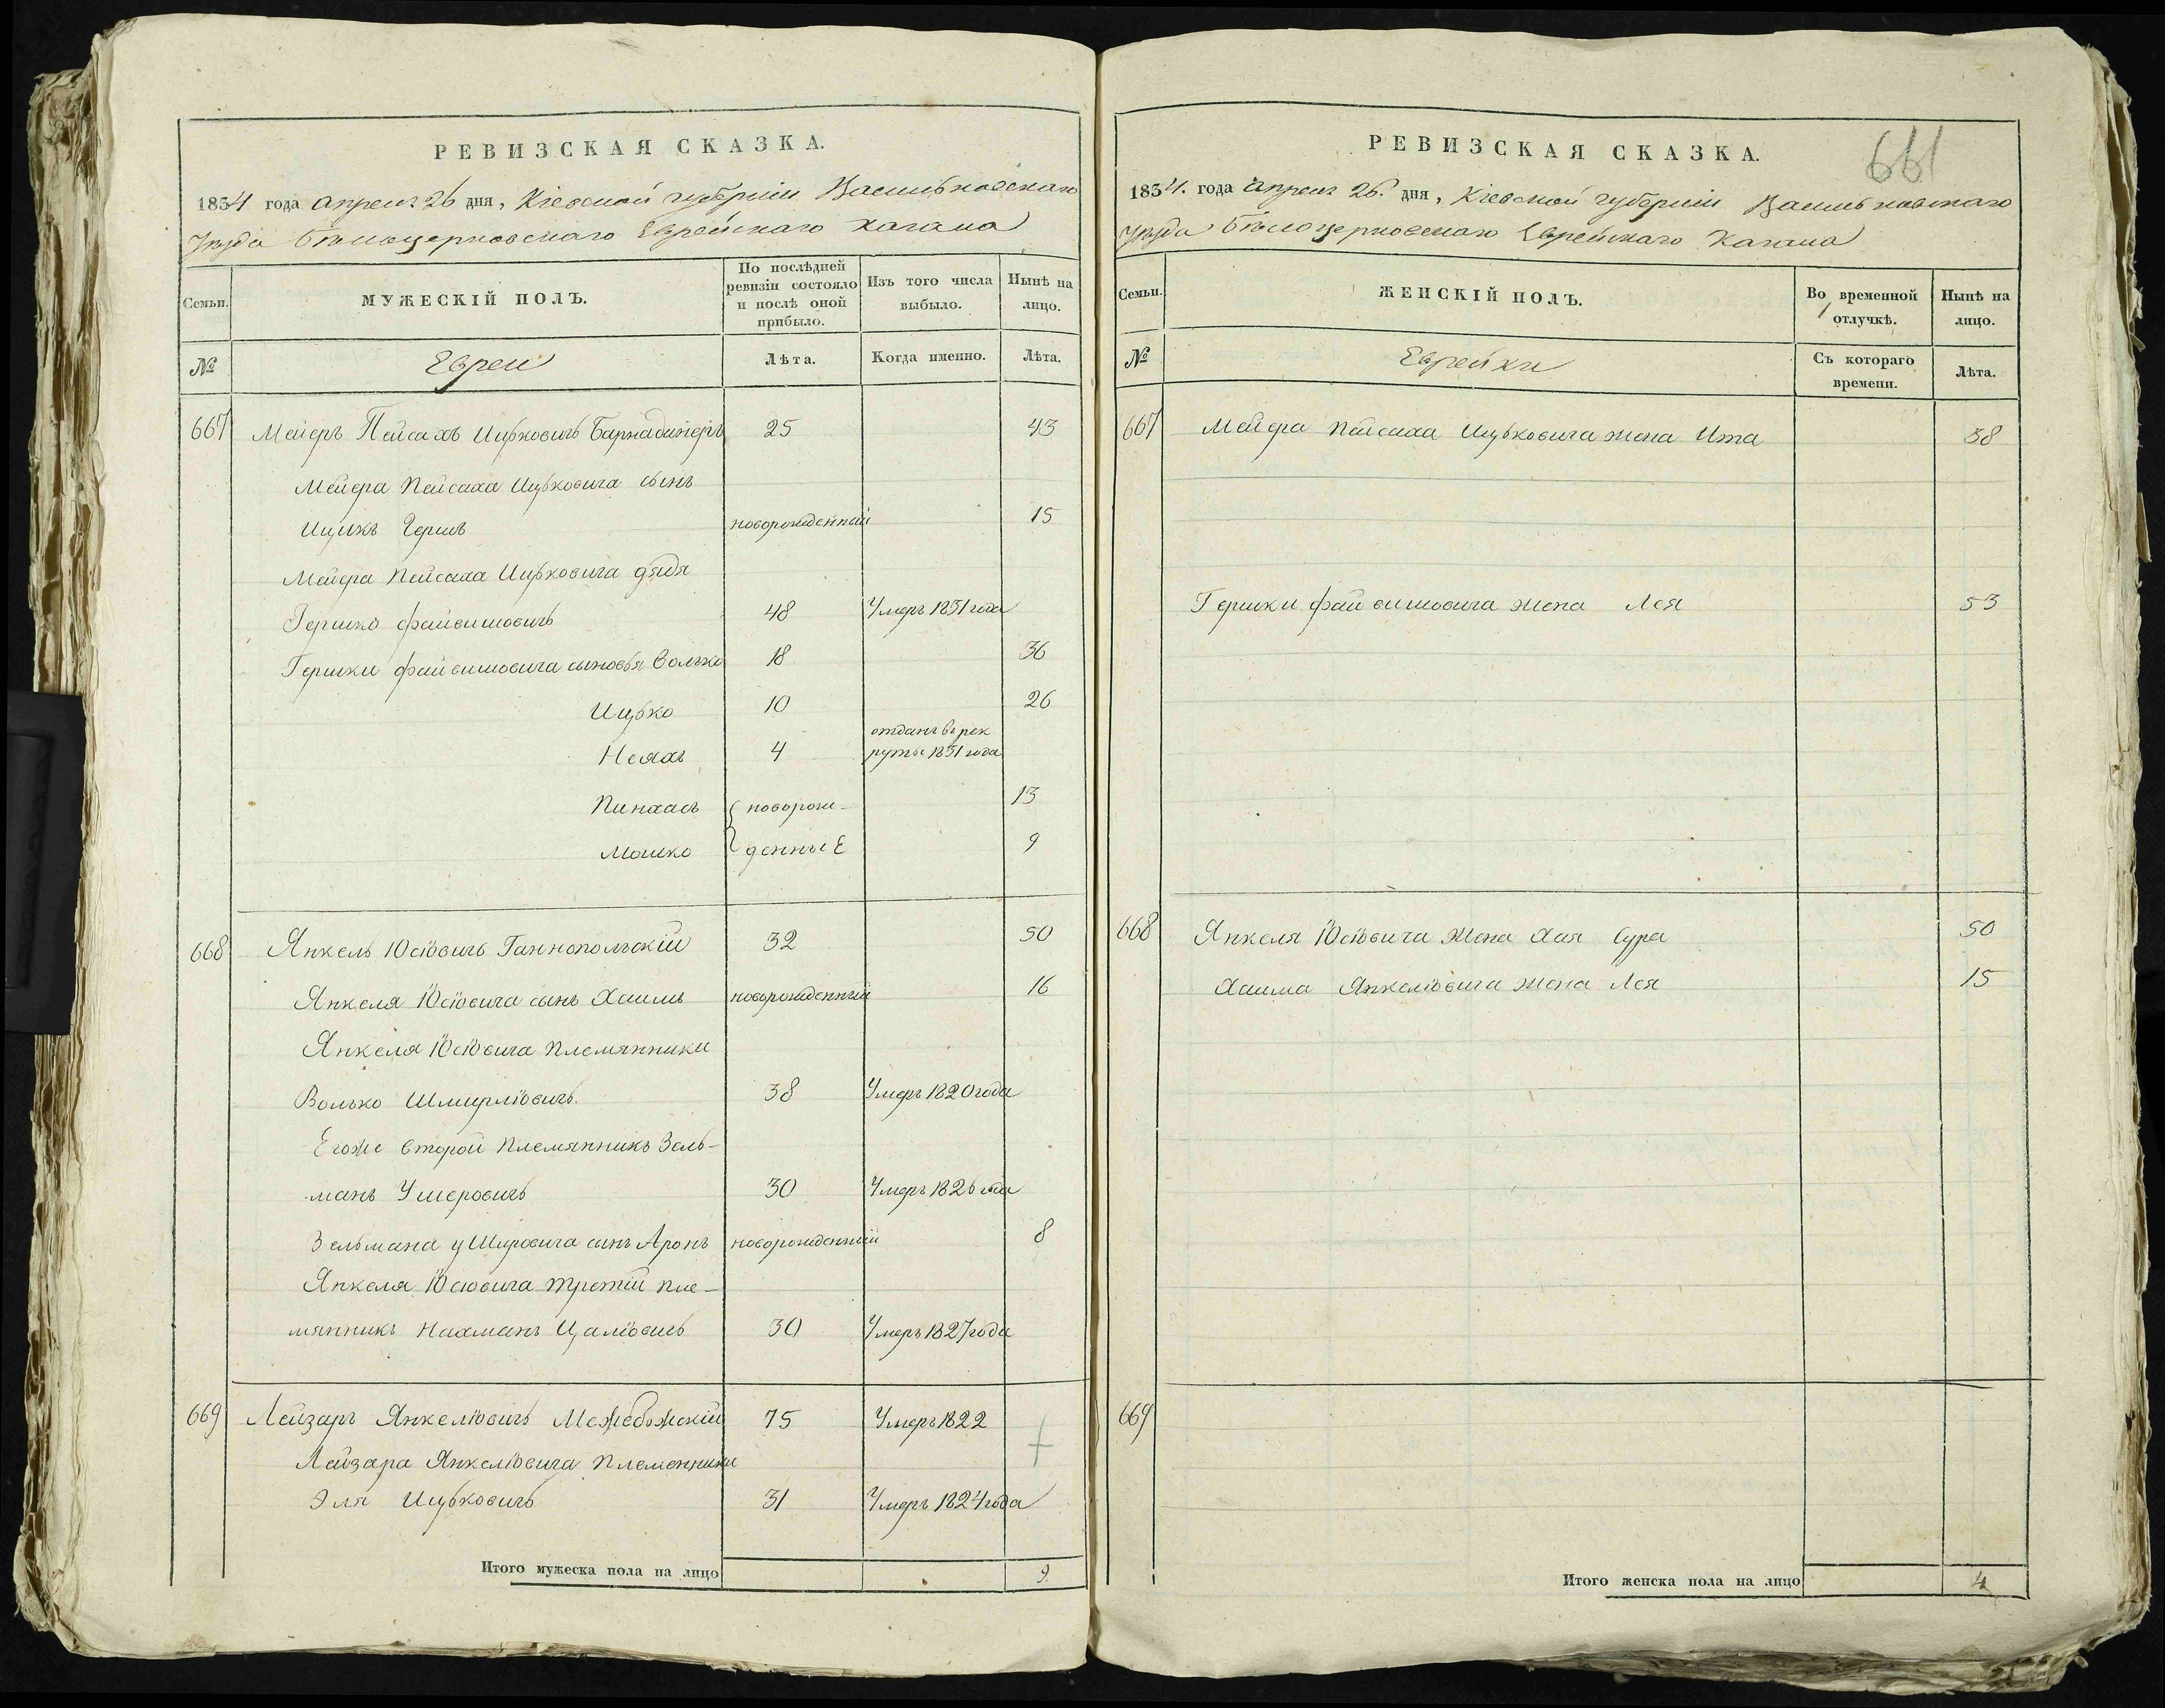 РЕВИЗСКАЯ СКАЗКА.
1834 года Апреля 26 дня, Кіевской губерніи Васильковскаго
Уезда Белоцерковскаго Еврейскаго Кагала
Семьи.
МУЖЕСКІЙ ПОЛЪ.
По послѣдней ревизіи состояло и послѣ оной прибыло.
Изъ того числа выбыло.
Нынѣ на лицо.
№
Евреи
Лѣта.
Когда именно.
Лѣта.
667 Мейеръ Пейсахъ Ицьковичъ 25 43
Мейера Пейсаха Ицьковича сынъ
Ицикъ Гершъ новорожденный 15
Мейера Пейсаха Ицьковича дядя
Гершко Файвишовичъ 48 Умеръ 1831 года
Гершки Файвишовича сыновья Волько 18 36
Ицько 10 26
отданъ въ рек
Неяхъ 4 руты 1831 года
Пинхасъ новорож- 13
Мошко денные 9
668 Янкель Юсiовичъ Ганнопольскій 32 50
Янкеля Юсiовича сынъ Хаимъ новорожденный 16
Янкеля Юсiовича Племянники
Волько Шмирліовичъ. 38 Умеръ 1820 года
Егоже второй Племянникъ Зель-
манъ Ушеровичъ 30 Умеръ 1826 года
Зельмана уШировича сынъ Аронъ новорожденный 8
Янкеля Юсiовича третій пле-
мянникъ Нахманъ Цаліовичъ 30 Умеръ 1827 года
669 Лейзаръ Янкеліовичъ Межебожскій 75 Умеръ 1822
Лейзара Янкеліовича Племенники
Эля Ицьковичъ 31 Умеръ 1824 года
Итого мужеска пола на лицо 9.
661
РЕВИЗСКАЯ СКАЗКА.
1834. года Апреля 26. дня, Кіевской губерніи Васильковскаго
Уезда Белоцерковскаго Еврейскаго Кагала
Семьи.
ЖЕНСКІЙ ПОЛЪ.
Во временной отлучкѣ.
Нынѣ на лицо.
№
Еврейки
Съ котораго времени.
Лѣта.
667 Мейера Пейсаха Ицьковича жена Ита 38
Гершки Файвишовича жена Лея 53
668 Янкеля Юсiовича жена Хая Сура 50
Хаима Янкеліовича жена Лея 15
669
Итого женска пола на лицо 4